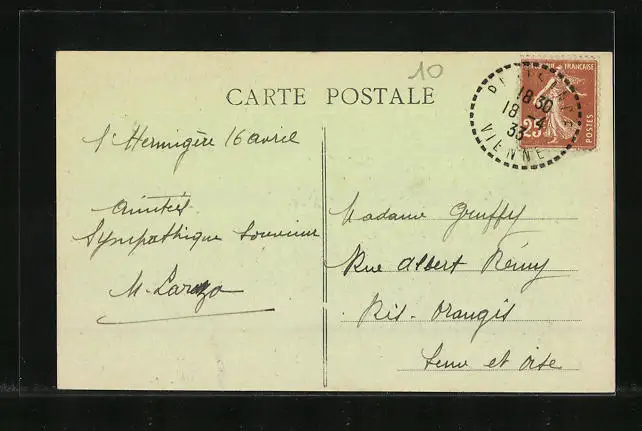 10
CARTE POSTALE
FRANÇAISE
25
POSTES
18 30
18 -4
33
VIENNE
16 avril
Amitiés
Sympathique Souvenir
M.
Madame Gruffy
Rue Albert Rémy
Ris-Orangis
Seine et Oise